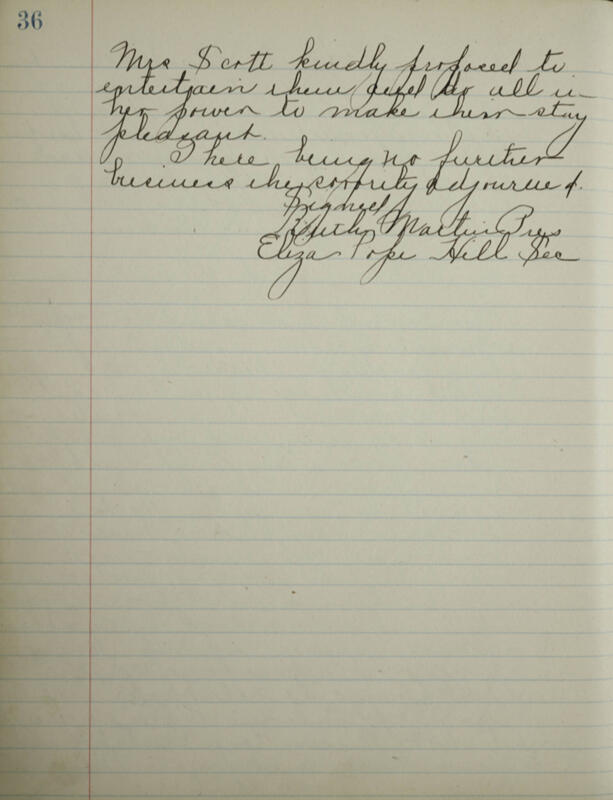 36
Mrs Scott kindly proposed to
entertain them and do all in
her power to make their stay
pleasant.
There being no further
business the sorority adjourned.
Signed
Ruth Martin Pres
Eliza Pope Hill Sec